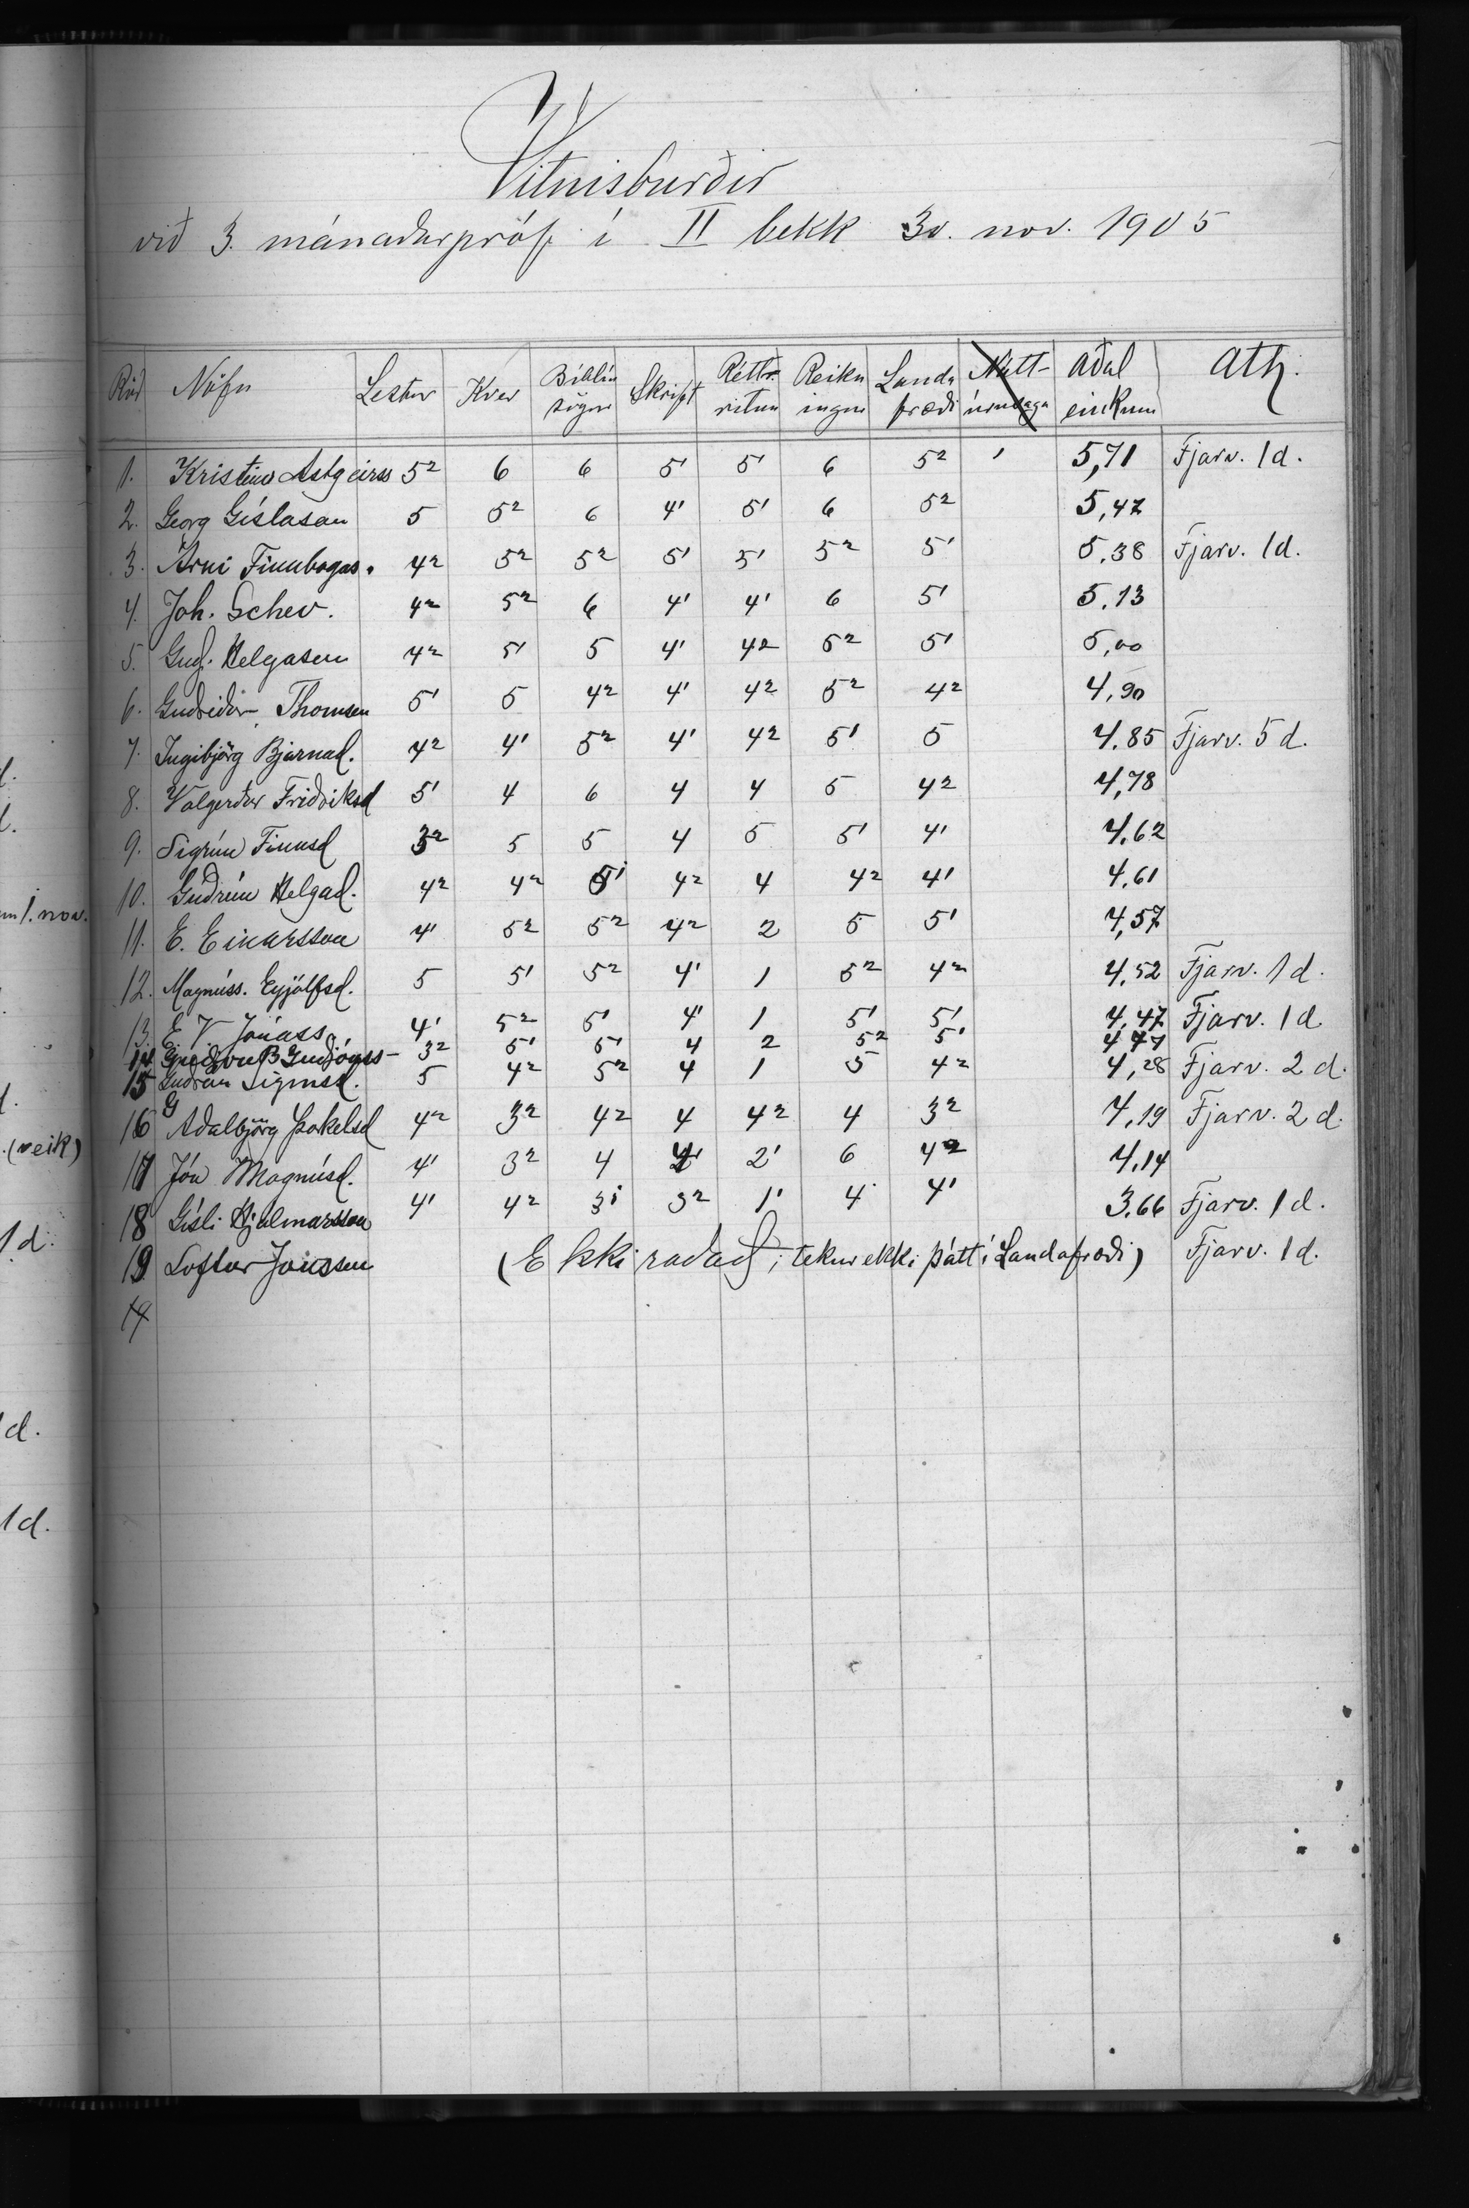 Vitnisburðir
við 3. mánaðarpróf í II bekk 30. nov. 1905
Röð Nöfn Lestur Kver Biblíu sögur Skrift Réttr. ritun Reikn ingur Landa fræði Nátt- úrusaga Aðal einkunn Ath.
1. Kristinn Astgeirss 5² 6 6 5¹ 5¹ 6 5² ' 5,71 Fjarv. 1 d.
2. Georg Gíslason 5 5² 6 4¹ 5¹ 6 5² 5,47
3. Árni Finnbogas. 4² 5² 5² 5¹ 5¹ 5² 5¹ 5.38 Fjarv. 1 d.
4. Joh. Schev. 4² 5² 6 4¹ 4¹ 6 5¹ 5.13
5. Guð. Helgason 4² 5¹ 5 4¹ 4² 5² 5¹ 5,00
6. Guðríður Thomsen 5¹ 5 4² 4¹ 4² 5² 4² 4,90
7. Ingibjörg Bjarnad. 4² 4¹ 5² 4¹ 4² 5¹ 5 4.85 Fjarv. 5 d.
8. Valgerður Friðriksd 5¹ 4 6 4 4 5 4² 4,78
9. Sigrún Finnsd 3² 5 5 4 5 5¹ 4¹ 4.62
10. Guðrún Helgad. 4² 4² 5¹ 4² 4 4² 4¹ 4.61
11. E. Einarsson 4¹ 5² 5² 4² 2 5 5¹ 4,57
12. Magnúss. Eyjólfsd. 5 5¹ 5² 4¹ 1 5² 4² 4,52 Fjarv. 1 d.
13. E V Jónass 4¹ 5² 5¹ 4¹ 1 5¹ 5¹ 4.47 Fjarv. 1 d
14 B Guðjónss 3² 5¹ 5¹ 4 2 5² 5¹ 4 47
15 Guðrún Sigmsd. 5 4² 5² 4 1 5 4² 4,28 Fjarv. 2 d.
16 Aðalbjörg Þorkelsd 4² 3² 4² 4 4² 4 3² 4,19 Fjarv. 2 d.
17 Jón Magnúsd. 4¹ 3² 4 4¹ 2¹ 6 4² 4.14
18 Gísli Hjalmarsson 4¹ 4² 3¹ 3² 1¹ 4 4¹ 3.66 Fjarv. 1 d.
19 Loftur Jónsson (Ekki raðað; tekur ekki þátt í Landafræði) Fjarv. 1 d.
19
m 1. nov.
(veik)
1 d.
d.
1 d.